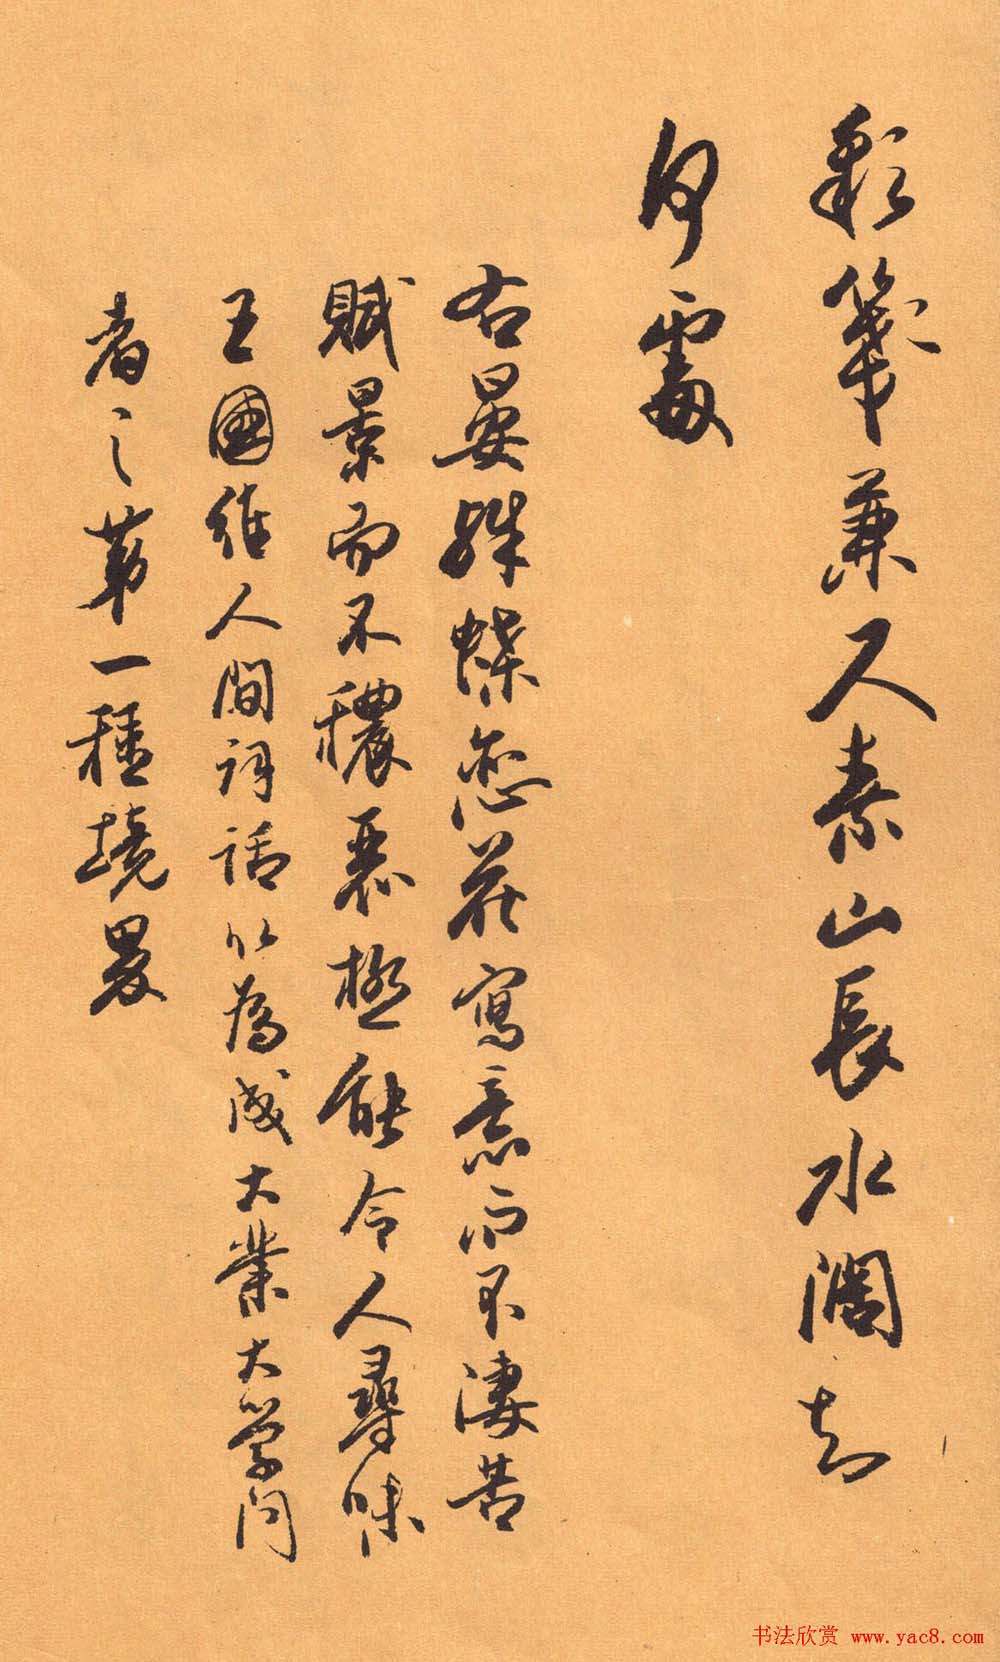 彩箋兼尺素山長水闊知
何處
右晏殊蝶戀花寫意而不淒苦
賦景而不穠麗極能令人尋味
王國維人間詞話以為成大業大學問
者之第一種境界
书法欣赏 www.yac8.com